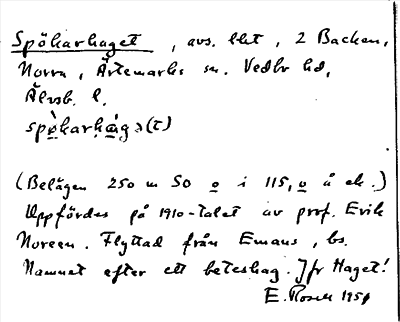 Spökarhaget, avs. lht, 2 Backen,
Norra, Ärtemarks sn. Vedbo hd,
Älvsb. l.
spø̀karhá̱gə(t)
(Belägen 250 m SO o i 115,0 å ek.)
Uppfördes på 1910-talet av prof. Erik
Noreen. Flyttad från Emaus, bs.
Namnet efter ett beteshag. Jfr Haget!
E. Rosell 1951